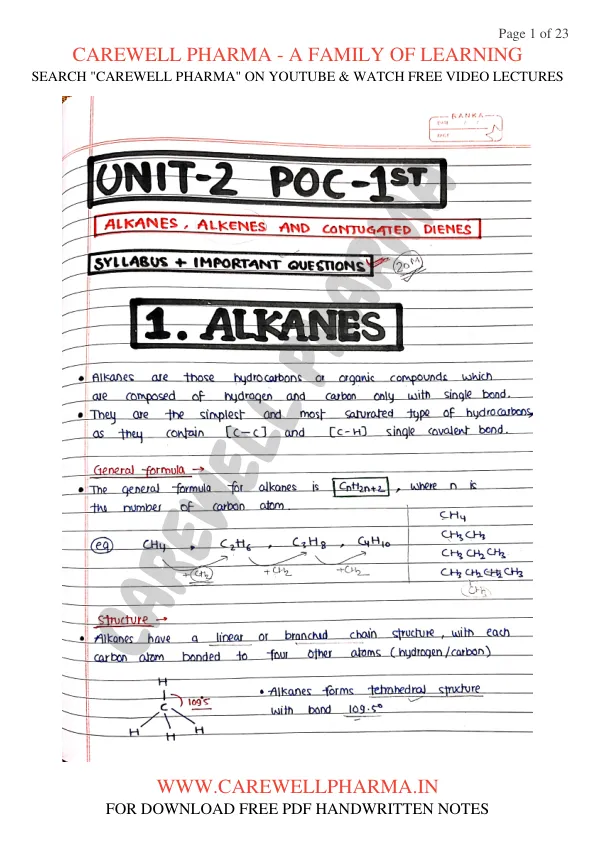 Page 1 of 23
CAREWELL PHARMA - A FAMILY OF LEARNING
SEARCH "CAREWELL PHARMA" ON YOUTUBE & WATCH FREE VIDEO LECTURES
RANKA
UNIT-2 POC-1ST
ALKANES, ALKENES AND CONJUGATED DIENES
SYLLABUS + IMPORTANT QUESTIONS 20M
1. ALKANES
• Alkanes are those hydrocarbons or organic compounds which
are composed of hydrogen and carbon only with single bond.
• They are the simplest and most saturated type of hydrocarbons,
as they contain [C-C] and [C-H] single covalent bond.
General formula →
• The general formula for alkanes is CnH2n+2, where n is
the number of carbon atom.
CH4
CH3 CH3
CH3 CH2 CH3
CH3 CH2 CH2 CH3
eg CH4, C2H6, C3H8, C4H10
+CH2 +CH2 +CH2
Structure →
• Alkanes have a linear or branched chain structure, with each
carbon atom bonded to four other atoms (hydrogen/carbon)
H
C 109.5
H H H
• Alkanes forms tetrahedral structure
with bond 109.5°
CAREWELL PHARMA
WWW.CAREWELLPHARMA.IN
FOR DOWNLOAD FREE PDF HANDWRITTEN NOTES